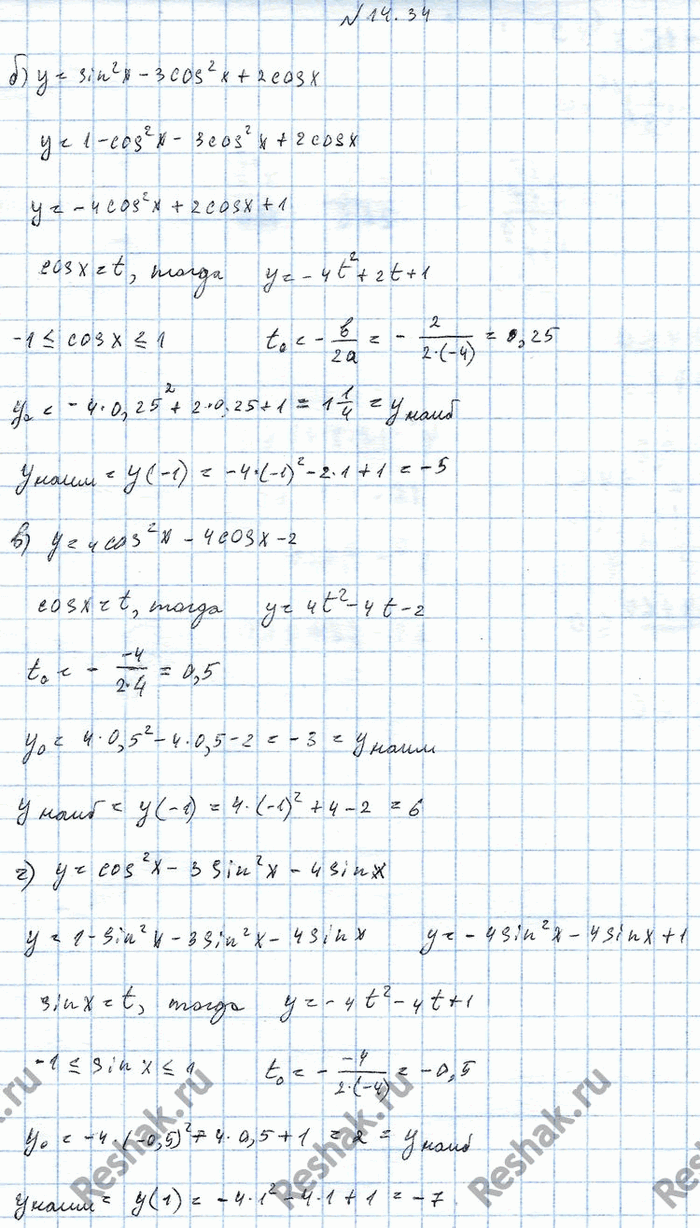 № 14.34
б) y = sin²x - 3cos²x + 2cosx
y = 1 - cos²x - 3cos²x + 2cosx
y = -4cos²x + 2cosx + 1
cosx = t, тогда y = -4t² + 2t + 1
-1 ≤ cosx ≤ 1 t₀ = - b/2a = - 2/2·(-4) = 0,25
y₀ = -4·0,25² + 2·0,25 + 1 = 1 1/4 = y наиб
y наим = y(-1) = -4·(-1)² - 2·1 + 1 = -5
в) y = 4cos²x - 4cosx - 2
cosx = t, тогда y = 4t² - 4t - 2
t₀ = - -4/2·4 = 0,5
y₀ = 4·0,5² - 4·0,5 - 2 = -3 = y наим
y наиб = y(-1) = 4·(-1)² + 4 - 2 = 6
г) y = cos²x - 3sin²x - 4sinx
y = 1 - sin²x - 3sin²x - 4sinx y = -4sin²x - 4sinx + 1
sinx = t, тогда y = -4t² - 4t + 1
-1 ≤ sinx ≤ 1 t₀ = - -4/2·(-4) = -0,5
y₀ = -4·(-0,5)² + 4·0,5 + 1 = 2 = y наиб
y наим = y(1) = -4·1² - 4·1 + 1 = -7
Reshak.ru
Reshak.ru
Reshak.ru